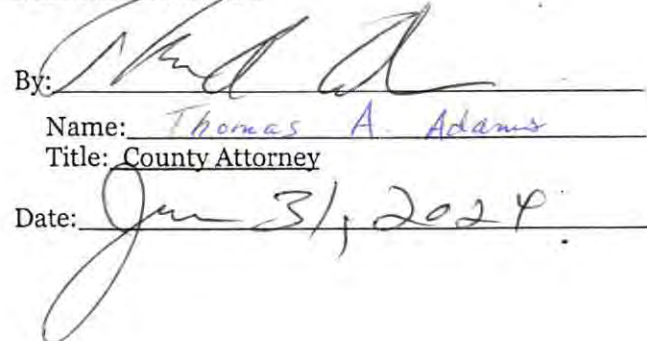 By:
Name: Thomas A. Adams
Title: County Attorney
Date: Jan 31, 2024